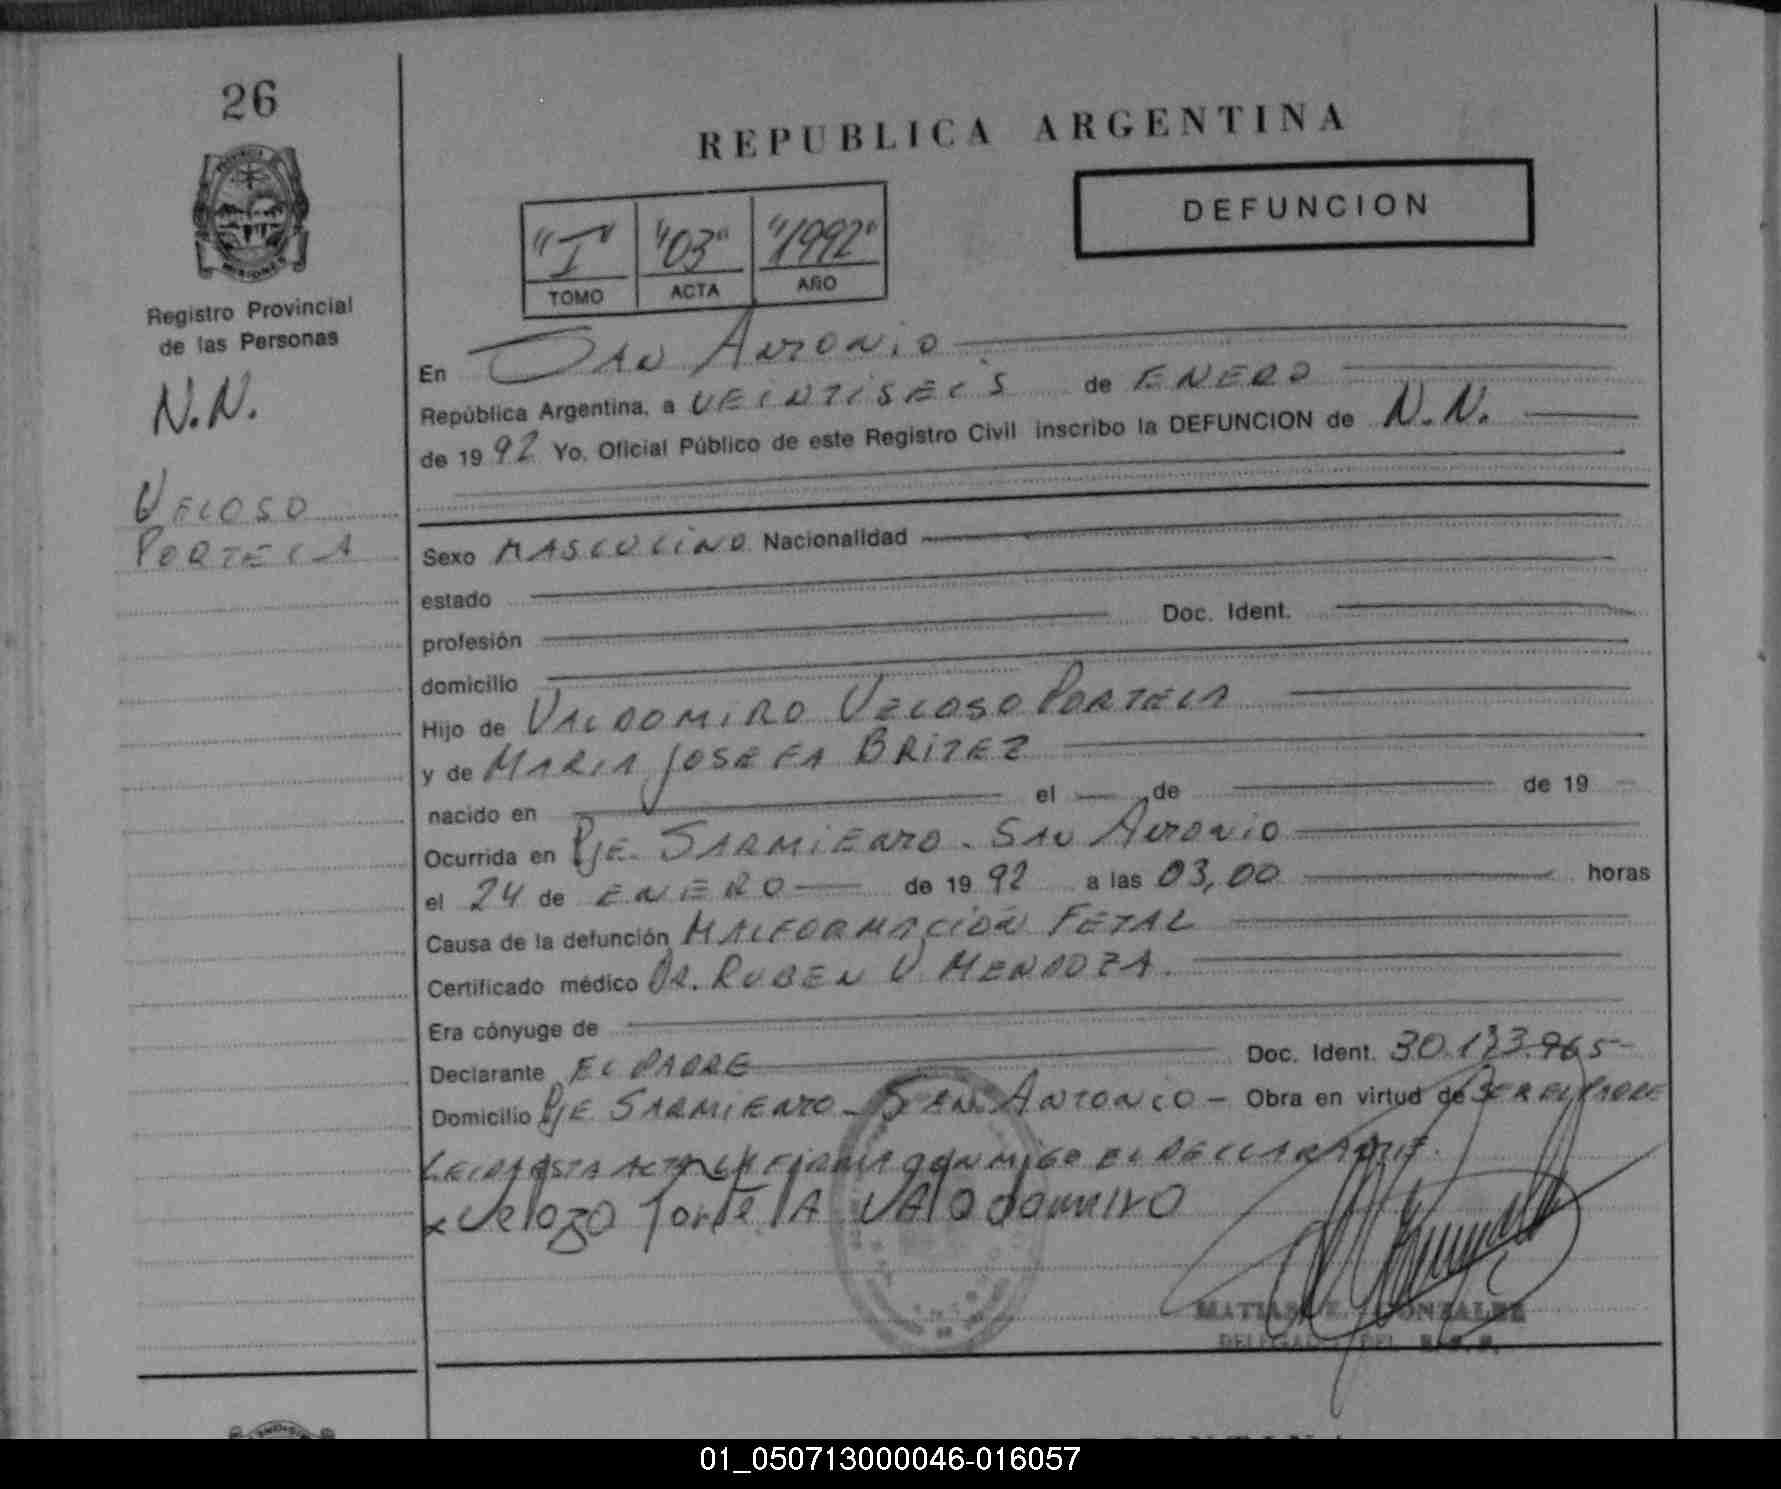 26
REPUBLICA ARGENTINA
DEFUNCION
"I" "03" "1992"
TOMO ACTA AÑO
Registro Provincial
de las Personas
N.N.
VELOSO
PORTELA
En SAN ANTONIO
República Argentina, a VEINTISEIS de ENERO
de 1992 Yo, Oficial Público de este Registro Civil inscribo la DEFUNCION de N.N.
Sexo MASCULINO Nacionalidad
estado
profesión Doc. Ident.
domicilio
Hijo de VALDOMIRO VELOSO PORTELA
y de MARIA JOSEFA BRITEZ
nacido en el de de 19
Ocurrida en PJE. SARMIENTO - SAN ANTONIO
el 24 de ENERO de 1992 a las 03,00 horas
Causa de la defunción MALFORMACIÓN FETAL
Certificado médico DR. RUBEN V. MENDOZA.
Era cónyuge de
Declarante EL PADRE Doc. Ident. 30.133.965
Domicilio PJE SARMIENTO - SAN ANTONIO - Obra en virtud de SER EL PADRE
LEIDA ESTA ACTA LA FIRMA CONMIGO EL DECLARANTE.
x Velozo PorteLA VALDdomiro
MATIAS E. GONZALEZ
DELEGADO DEL R.P.P.
01_050713000046-016057